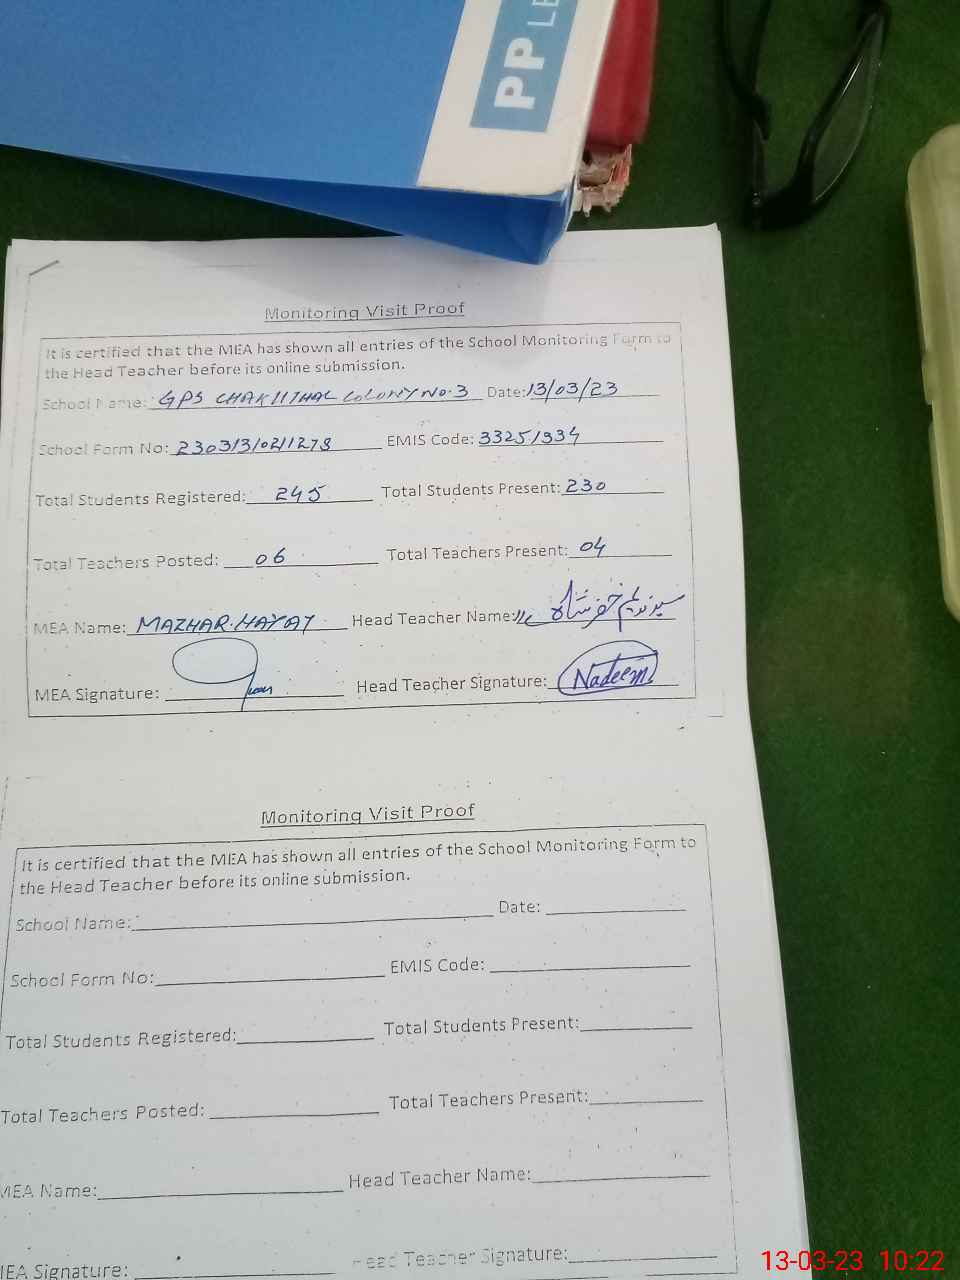 PP LE
Monitoring Visit Proof
It is certified that the MEA has shown all entries of the School Monitoring Form to
the Head Teacher before its online submission.
School Name: GPS CHAK 11THAL COLONY NO.3 Date: 13/03/23
School Form No: EMIS Code:
Total Students Registered: 245 Total Students Present: 230
Total Teachers Posted: 06 Total Teachers Present: 04
MEA Name: MAZHAR.HAYAT Head Teacher Name:
MEA Signature: Head Teacher Signature: Nadeem
Monitoring Visit Proof
It is certified that the MEA has shown all entries of the School Monitoring Form to
the Head Teacher before its online submission.
School Name: Date:
School Form No: EMIS Code:
Total Students Registered: Total Students Present:
Total Teachers Posted: Total Teachers Present:
MEA Name: Head Teacher Name:
MEA Signature: Head Teacher Signature:
13-03-23 10:22